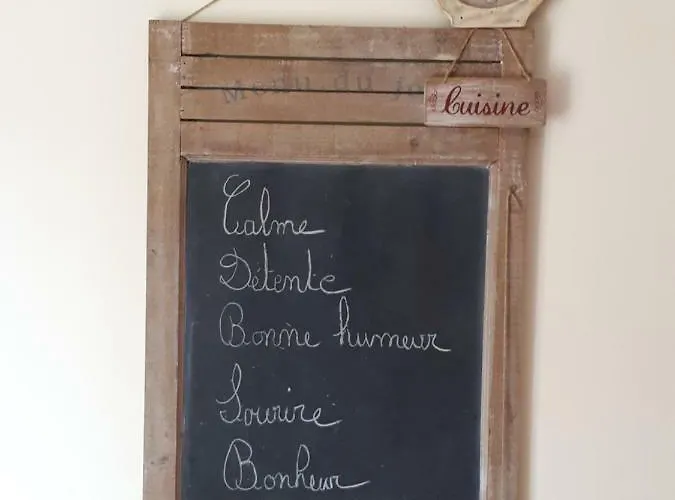 Menu du jo
Cuisine
Calme
Détente
Bonne humeur
Sourire
Bonheur